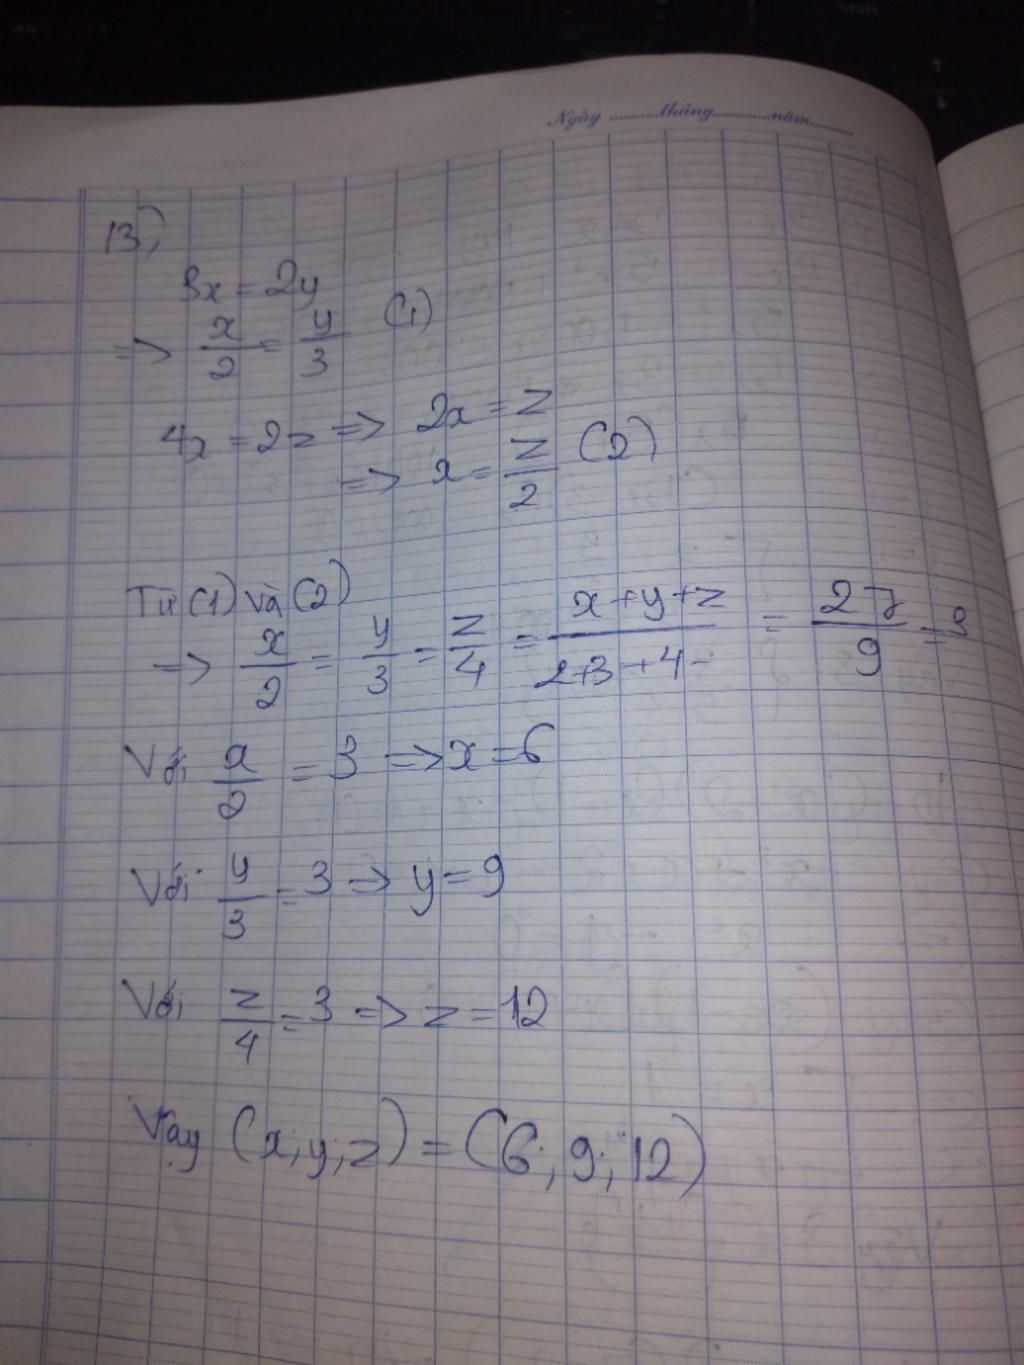 Ngày ..........tháng..........năm..........
13)
3x = 2y
=> x/2 = y/3 (1)
4x = 2z => 2x = z
=> x = z/2 (2)
Từ (1) và (2)
=> x/2 = y/3 = z/4 = x+y+z/2+3+4 = 27/9 = 3
Với x/2 = 3 => x = 6
Với y/3 = 3 => y = 9
Với z/4 = 3 => z = 12
Vậy (x; y; z) = (6; 9; 12)